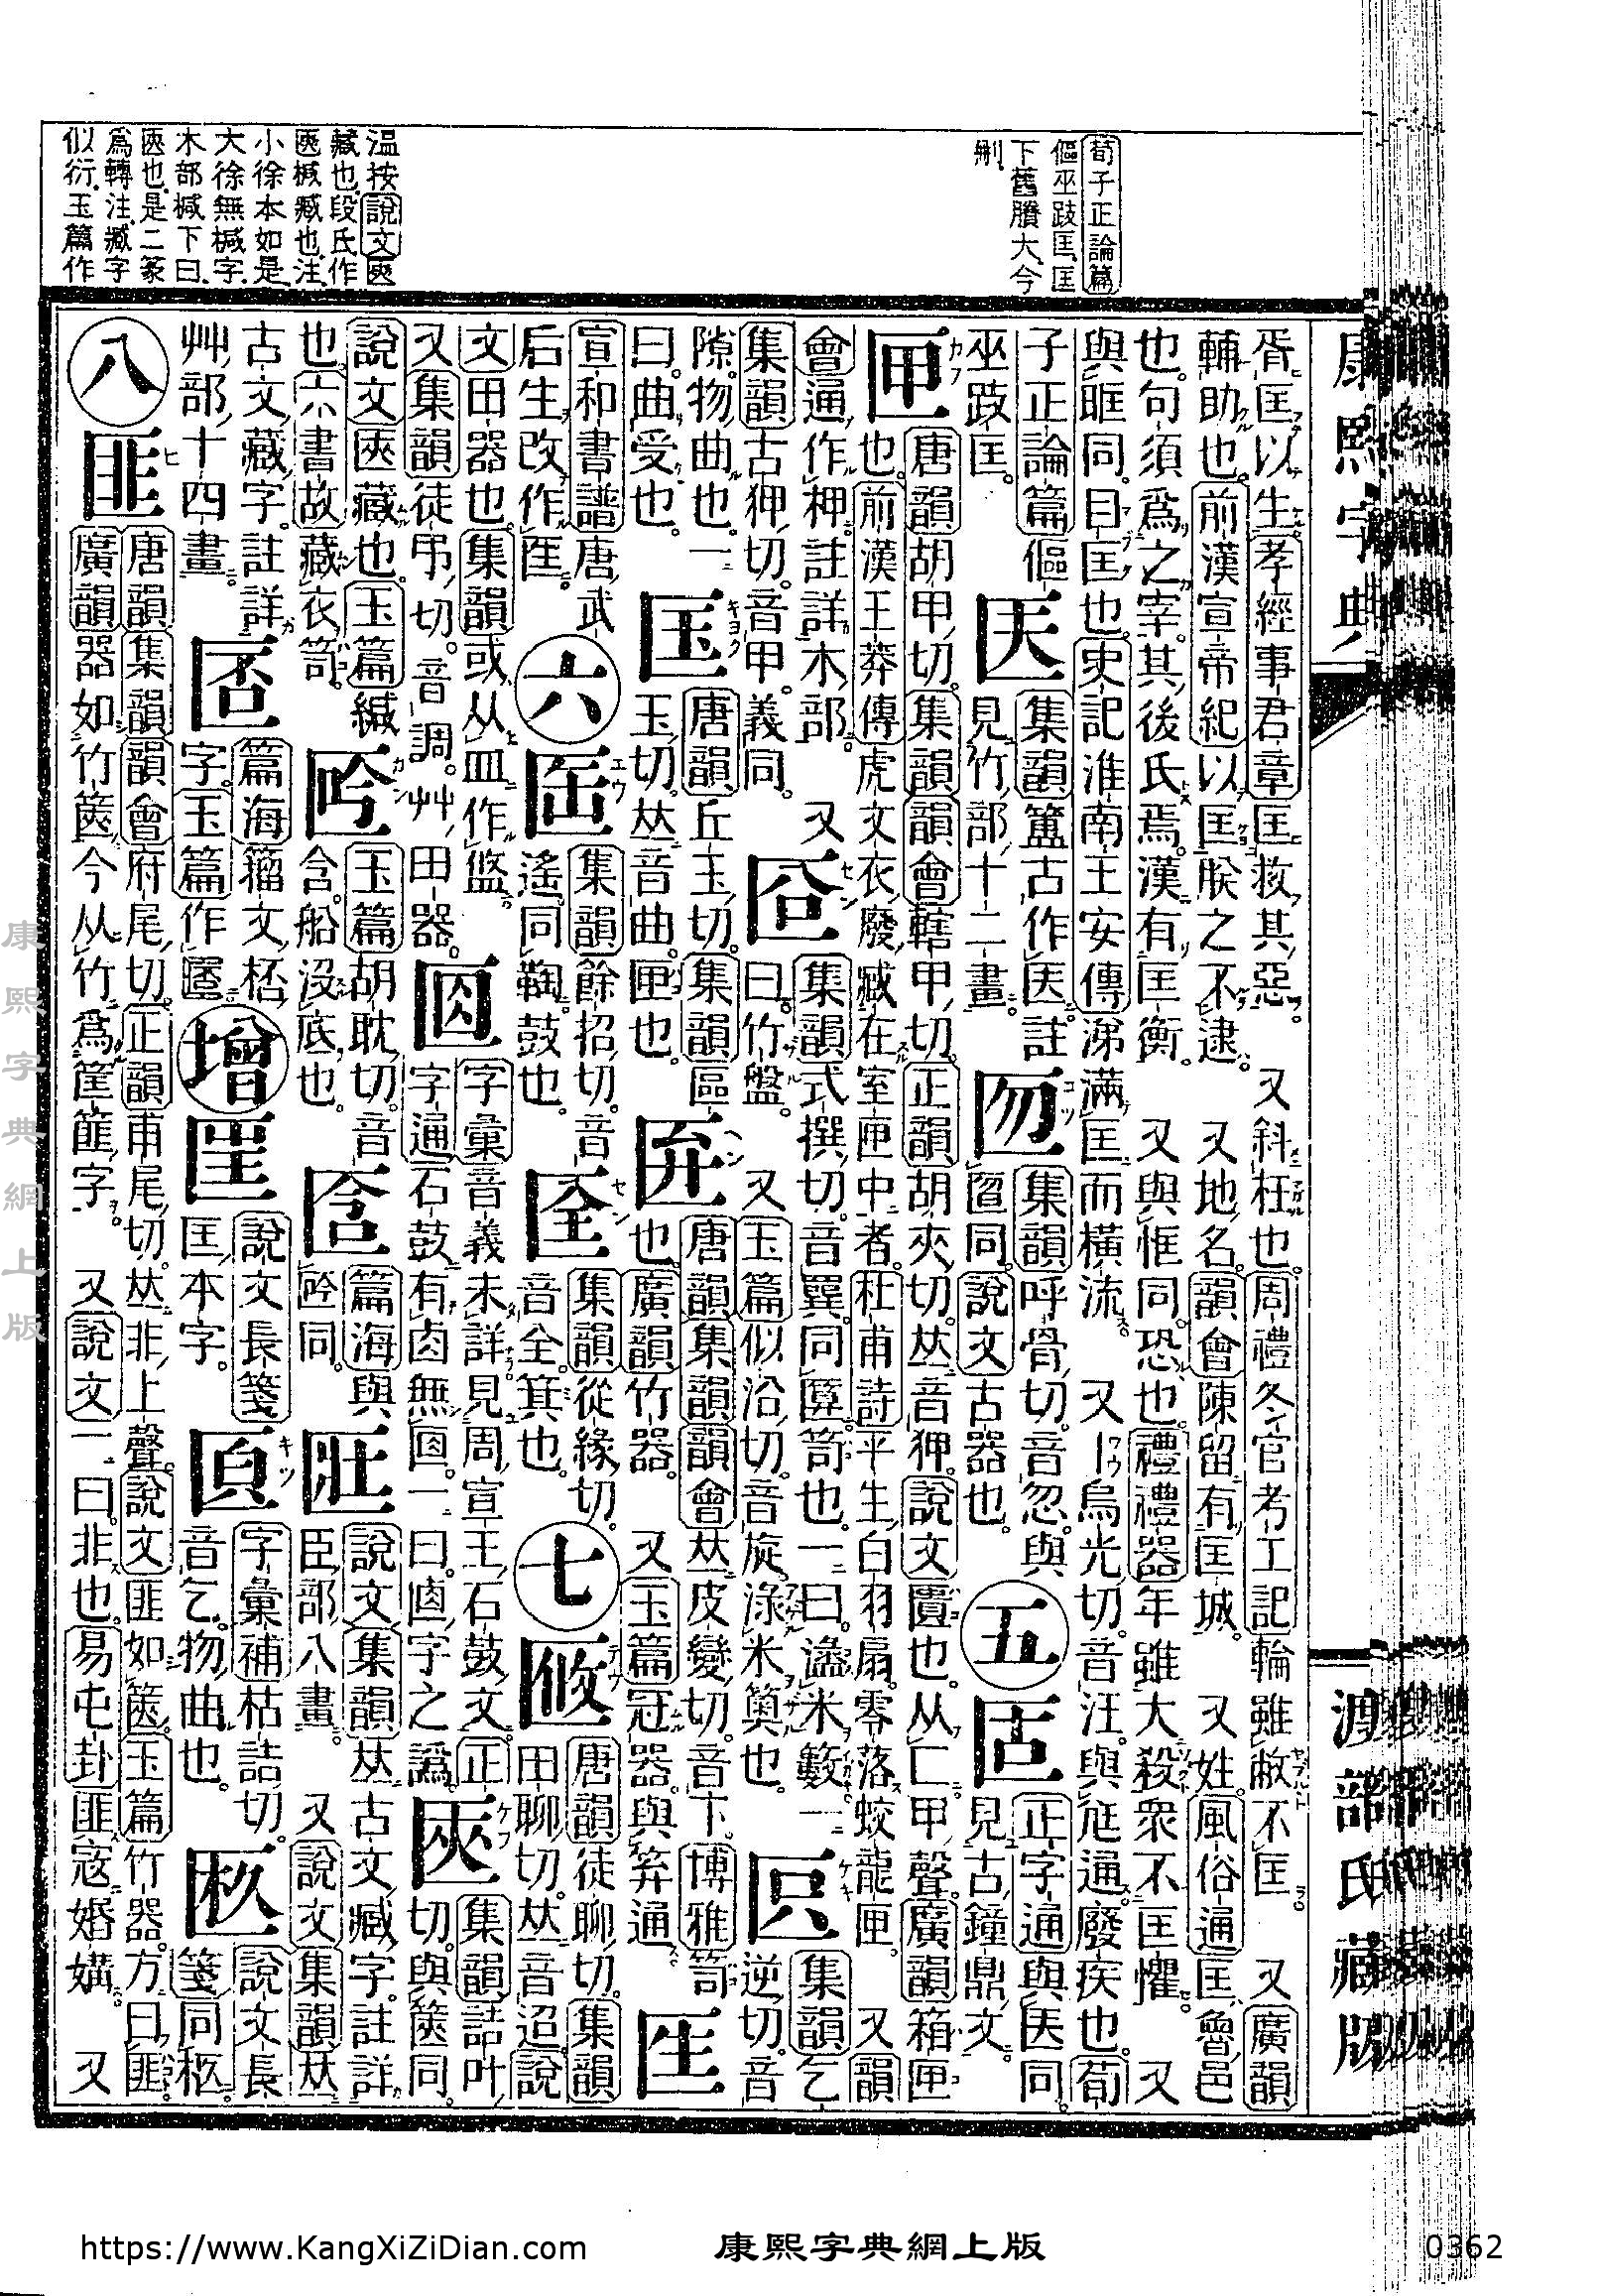 荀子正論篇
傴巫跂匡匡
下舊贋大今
刪
温按說文匧
藏也段氏作
匧椷臧也注
小徐本如是
大徐無椷字
木部椷下曰
匧也是二篆
爲轉注臧字
似衍玉篇作
康熙字典
渡部氏藏版
胥匡以生孝經事君章匡救其惡。又斜枉也。周禮冬官考工記輪雖敝不匡。又廣韻
輔助也。前漢宣帝紀以匡朕之不逮。又地名。韻會陳留有匡城。又姓。風俗通匡魯邑
也。句須爲之宰。其後氏焉。漢有匡衡。又與恇同。恐也。禮禮器年雖大殺衆不匡懼。又
與眶同。目匡也。史記淮南王安傳涕滿匡而橫流。又烏光切。音汪。與尫通。廢疾也。荀
子正論篇傴
巫跂匡。
集韻簠古作 註
見竹部十二畫。
匢
集韻呼骨切。音忽。與
匫同。說文古器也。
五
正字通與 同。
見古鐘鼎文。
匣
唐韻胡甲切。集韻韻會轄甲切。正韻胡夾切。𠀤音狎。說文匱也。从匚甲聲。廣韻箱匣
也。前漢王莽傳虎文衣廢臧在室匣中者。杜甫詩平生白羽扇零落蛟龍匣。又韻
會通作柙。註詳木部。又
集韻古狎切。音甲。義同。
集韻式撰切。音㢲。同匴。笥也。一曰盪米籔。一
曰竹盤。又玉篇似沿切。音旋。淥米䉛也。
集韻乞逆切。音
隙。物曲也。一
曰曲受也。
匤
唐韻丘玉切。集韻區
玉切。𠀤音曲。匣也。
匥
唐韻集韻韻會𠀤皮變切。音卞。博雅笥
也。廣韻竹器。又玉篇冠器。與笲通。
宣和書譜唐武
后生改作 。
六
集韻餘招切。音
遙。同鞀。鼓也。
集韻從緣切。
音全。箕也。
七
唐韻徒聊切。集韻
田聊切。𠀤音迢。說
文田器也。集韻或从皿作 。
又集韻徒弔切。音調。艸田器。
字彙音義未詳。見周宣王石鼓文。正
字通石鼓有卣無 。一曰 字之譌。
匧
集韻詰叶
切。與篋同。
說文匧藏也。玉篇緘
也。六書故藏衣笥。
玉篇胡耽切。音
含。船沒底也。
篇海與
 同。
說文集韻𠀤古文臧字。註詳
臣部八畫。又說文集韻𠀤
古文藏字。註詳
艸部十四畫。
篇海籀文桮
字。玉篇作 
增
說文長箋
匡本字。
字彙補枯詰切。
音乞。物曲也。
說文長
箋同柩。
八
匪
唐韻集韻韻會府尾切。正韻甫尾切。𠀤非上聲。說文匪如篋。玉篇竹器。方曰匪。
廣韻器如竹篋。今从竹爲筐篚字。又說文一曰。非也。易屯卦匪寇婚媾。又
康熙字典網上版
https://www.KangXiZiDian.com
康熙字典網上版
0362